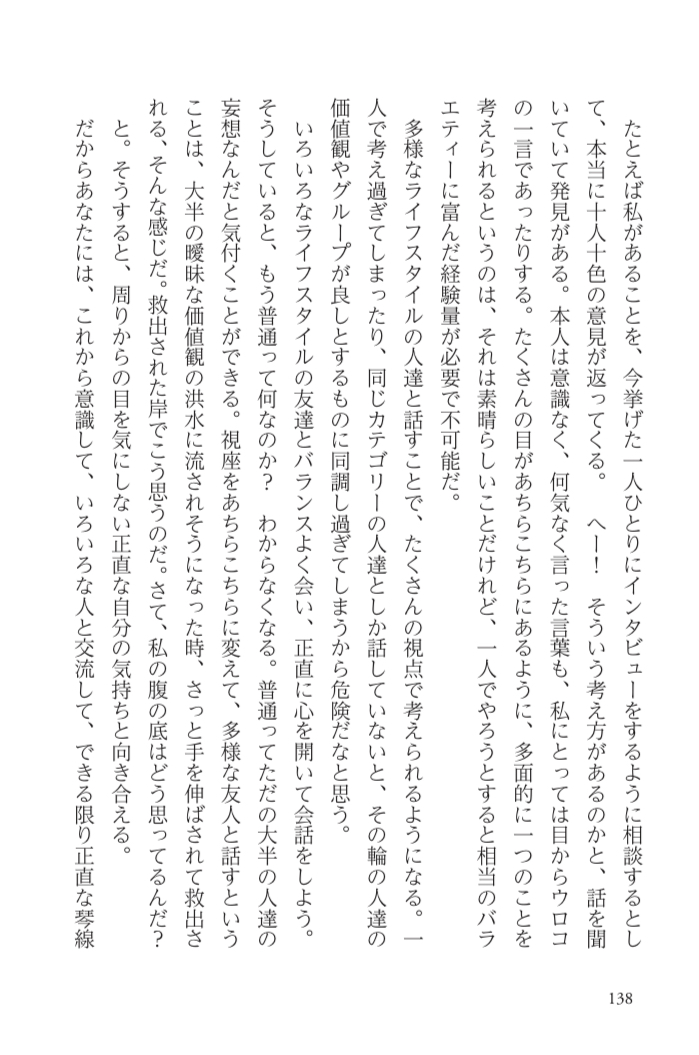 たとえば私があることを、今挙げた一人ひとりにインタビューをするように相談するとし
て、本当に十人十色の意見が返ってくる。　へー！　そういう考え方があるのかと、話を聞
いていて発見がある。本人は意識なく、何気なく言った言葉も、私にとっては目からウロコ
の一言であったりする。たくさんの目があちらこちらにあるように、多面的に一つのことを
考えられるというのは、それは素晴らしいことだけれど、一人でやろうとすると相当のバラ
エティーに富んだ経験量が必要で不可能だ。
多様なライフスタイルの人達と話すことで、たくさんの視点で考えられるようになる。一
人で考え過ぎてしまったり、同じカテゴリーの人達としか話していないと、その輪の人達の
価値観やグループが良しとするものに同調し過ぎてしまうから危険だなと思う。
いろいろなライフスタイルの友達とバランスよく会い、正直に心を開いて会話をしよう。
そうしていると、もう普通って何なのか？　わからなくなる。普通ってただの大半の人達の
妄想なんだと気付くことができる。視座をあちらこちらに変えて、多様な友人と話すという
ことは、大半の曖昧な価値観の洪水に流されそうになった時、さっと手を伸ばされて救出さ
れる、そんな感じだ。救出された岸でこう思うのだ。さて、私の腹の底はどう思ってるんだ？
と。そうすると、周りからの目を気にしない正直な自分の気持ちと向き合える。
だからあなたには、これから意識して、いろいろな人と交流して、できる限り正直な琴線
138